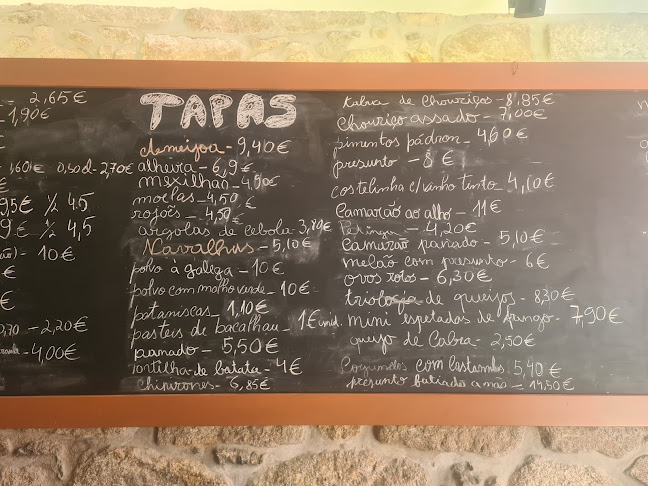 2,65€
1,90€
1,60€ 0,50d - 2,70€
9,5€ ½ 4,5
9€ ½ 4,5
- 10€
€
€
- 2,20€
- 4,00€
TAPAS
ameijoa - 9,40€
alheira - 6,9€
mexilhão - 4,50€
moelas - 4,50€
rojões - 4,50€
argolas de cebola 3,80€
Navalhas - 5,10€
polvo à galega - 10€
polvo com molho verde - 10€
pataniscas - 1,10€
pasteis de bacalhau - 1€ unid.
panado - 5,50€
tortilha de batata - 4€
chipirones - 6,85€
tabua de chouriços - 8,85€
chouriço assado - 7,00€
pimentos pádron - 4,60€
presunto - 8€
costelinha c/vinho tinto - 4,10€
Camarão ao alho - 11€
- 4,20€
Camarão panado - 5,10€
melão com presunto - 6€
ovos rotos - 6,30€
triologia de queijos - 8,30€
mini espetadas de frango - 7,90€
queijo de Cabra - 2,50€
Cogumelos com Castanhas 5,40€
presunto fatiado a mão - 14,50€